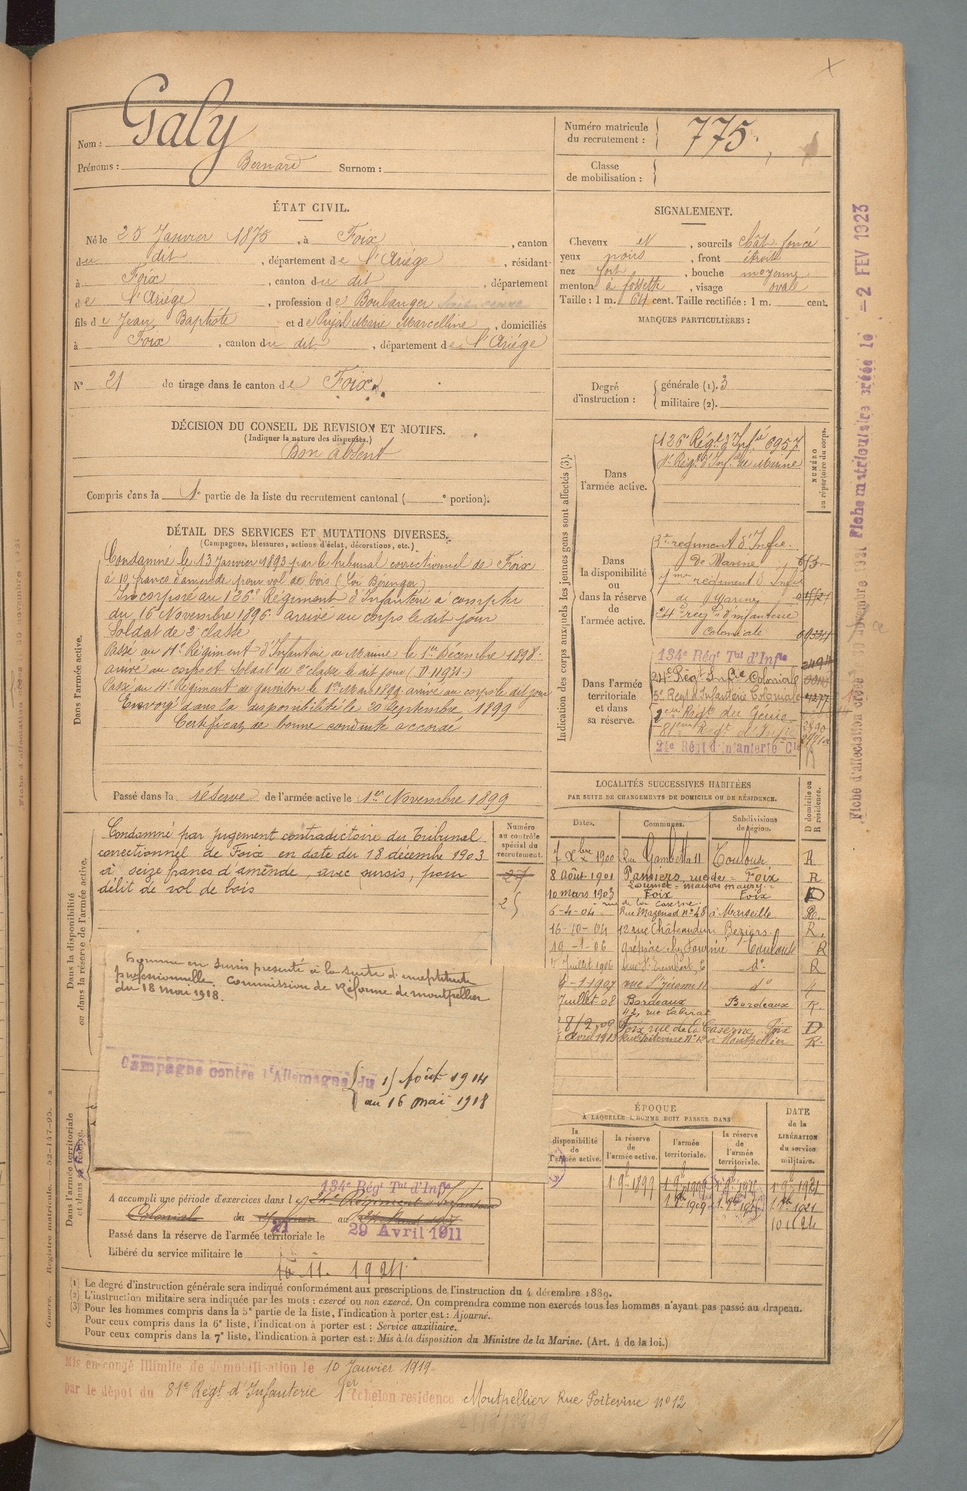 Nom : Galy
Prénoms : Bernard Surnom :
ÉTAT CIVIL.
Né le 25 Janvier 1875, à Foix, canton
du dit, département de l'Ariège, résidant
à Foix, canton du dit, département
de l'Ariège, profession de Boulanger
fils de Jean Baptiste et de Pujal Marie Marcelline, domiciliés
à Foix, canton du dit, département de l'Ariège
N° 21 de tirage dans le canton de Foix.
DÉCISION DU CONSEIL DE REVISION ET MOTIFS.
(Indiquer la nature des dispenses.)
Bon absent
Compris dans la 1e partie de la liste du recrutement cantonal ( e portion).
DÉTAIL DES SERVICES ET MUTATIONS DIVERSES.
(Campagnes, blessures, actions d'éclat, décorations, etc.)
Dans l'armée active.
Condamné le 13 Janvier 1893 par le tribunal correctionnel de Foix
à 10 francs d'amende pour vol de bois (Loi Bérenger)
Incorporé au 126e Régiment d'Infanterie à compter
du 16 Novembre 1896 arrivé au corps le dit jour
Soldat de 2e classe
Passé au 4e Régiment d'Infanterie de Marine le 1er Décembre 1898
arrivé au corps et soldat de 2e classe le dit jour (N° 11931)
Passé au 4e Régiment de le 1er Mai 1899 arrivé au corps le dit jour
Envoyé dans la disponibilité le 20 Septembre 1899
Certificat de bonne conduite accordé
Passé dans la réserve de l'armée active le 1er Novembre 1899
Dans la disponibilité
ou dans la réserve de l'armée active.
Condamné par jugement contradictoire du Tribunal
correctionnel de Foix en date du 18 décembre 1903
à seize francs d'amende, avec sursis, pour
délit de vol de bois
Numéro
au contrôle
spécial du
recrutement.
25
Homme en sursis présenté à la suite d'inaptitude
professionnelle. Commission de Réforme de Montpellier
du 18 mai 1918.
Campagne contre l'Allemagne du 1) Août 1914
au 16 mai 1918
Dans l'armée territoriale
et dans sa réserve.
134e Régt Tal d'Infie
A accompli une période d'exercices dans le 24e Régiment d'Infanterie
Coloniale du 21 au
Passé dans la réserve de l'armée territoriale le 29 Avril 1911
Libéré du service militaire le 10. 11. 1924
(1) Le degré d'instruction générale sera indiqué conformément aux prescriptions de l'instruction du 4 décembre 1889.
(2) L'instruction militaire sera indiquée par les mots : exercé ou non exercé. On comprendra comme non exercés tous les hommes n'ayant pas passé au drapeau.
(3) Pour les hommes compris dans la 5e partie de la liste, l'indication à porter est : Ajourné.
Pour ceux compris dans la 6e liste, l'indication à porter est : Service auxiliaire.
Pour ceux compris dans la 7e liste, l'indication à porter est : Mis à la disposition du Ministre de la Marine. (Art. 4 de la loi.)
Mis en congé illimité de démobilisation le 10 Janvier 1919.
par le dépôt du 81e Régt d'Infanterie 1er échelon résidence Montpellier Rue Poitevine n° 12
Numéro matricule
du recrutement : 775.
Classe
de mobilisation :
SIGNALEMENT.
Cheveux et, sourcils chât. foncé
yeux noirs, front étroit
nez fort, bouche moyenne
menton à fossette, visage ovale
Taille : 1 m. 64 cent. Taille rectifiée : 1 m. cent.
MARQUES PARTICULIÈRES :
Degré
d'instruction :
générale (1). 3
militaire (2).
Indication des corps auxquels les jeunes gens sont affectés (3).
NUMÉRO
au répertoire du corps.
Dans
l'armée active.
126e Régt d'Infie 6957
4e Régt d'Inf. de Marine
Dans
la disponibilité
ou
dans la réserve
de
l'armée active.
3me régiment d'Infie
de Marine
7me régiment d'Infie
de Marine
24e régt d'infanterie
coloniale
Dans l'armée
territoriale
et dans
sa réserve.
134e Régt Tal d'Infie
24e Régt Infie Coloniale
5e Régt d'Infanterie Coloniale
2eme Régt du Génie
81eme Régt d'Infie
24e Régt d'Infanterie Cle
LOCALITÉS SUCCESSIVES HABITÉES
PAR SUITE DE CHANGEMENTS DE DOMICILE OU DE RÉSIDENCE.
Dates. Communes. Subdivisions de région. D domicile ou R résidence.
7 Xbre 1900 Rue Gambetta 11 Toulouse R
8 Août 1901 Pamiers, rue de Foix R
10 mars 1903 Foix Foix D
6-4-04 Rue Mazenod n° 48 à Marseille R.
16-10-04 12 rue Châteaudun Béziers R.
10-1-06 Toulouse R
Juillet 1906 do R
6-1-1907 do
Juillet 08 Bordeaux Bordeaux R.
8/2/09 Foix rue de la Caserne Foix D
Avril 1913 Rue Poitevine n° 12 à Montpellier R.
ÉPOQUE
A LAQUELLE L'HOMME DOIT PASSER DANS
la disponibilité de l'armée active.
la réserve de l'armée active.
l'armée territoriale.
la réserve de l'armée territoriale.
DATE de la LIBÉRATION du service militaire.
1 9bre 1899 1 9bre 1909 1 9bre 1921
10 11 24
Fiche matriculaire créée le -2 FEV 1923
Gomre. — Registre matricule. — 52-147-95.